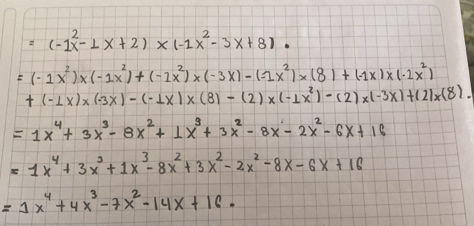 = (-1x² - 1x + 2) × (-1x² - 3x + 8) .
= (-1x²)×(-1x²) + (-1x²)×(-3x) - (-1x²)×(8) + (-1x)×(-1x²)
+ (-1x)×(-3x) - (-1x)×(8) - (2)×(-1x²) - (2)×(-3x) + (2)×(8) .
= 1x⁴ + 3x³ - 8x² + 1x³ + 3x² - 8x - 2x² - 6x + 16
= 1x⁴ + 3x³ + 1x³ - 8x² + 3x² - 2x² - 8x - 6x + 16
= 1x⁴ + 4x³ - 7x² - 14x + 16 .